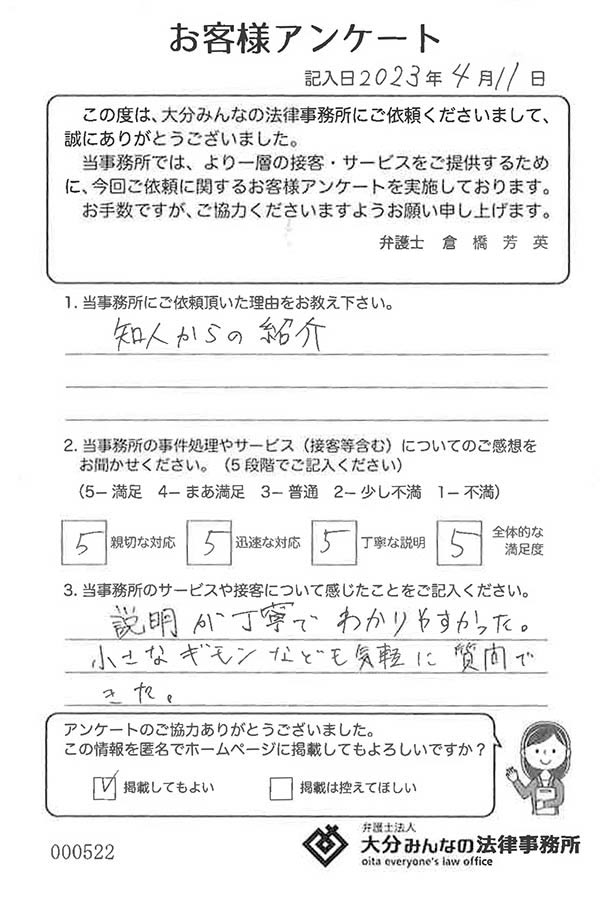 お客様アンケート
記入日2023年4月11日
この度は、大分みんなの法律事務所にご依頼くださいまして、
誠にありがとうございました。
当事務所では、より一層の接客・サービスをご提供するため
に、今回ご依頼に関するお客様アンケートを実施しております。
お手数ですが、ご協力くださいますようお願い申し上げます。
弁護士 倉橋芳英
1. 当事務所にご依頼頂いた理由をお教え下さい。
知人からの紹介
2. 当事務所の事件処理やサービス（接客等含む）についてのご感想を
お聞かせください。（5段階でご記入ください）
（5− 満足 4− まあ満足 3− 普通 2− 少し不満 1− 不満）
5 親切な対応 5 迅速な対応 5 丁寧な説明 5 全体的な
満足度
3. 当事務所のサービスや接客について感じたことをご記入ください。
説明が丁寧でわかりやすかった。
小さなギモンなども気軽に質問で
きた。
アンケートのご協力ありがとうございました。
この情報を匿名でホームページに掲載してもよろしいですか？
掲載してもよい 掲載は控えてほしい
弁護士法人
大分みんなの法律事務所
oita everyone's law office
000522